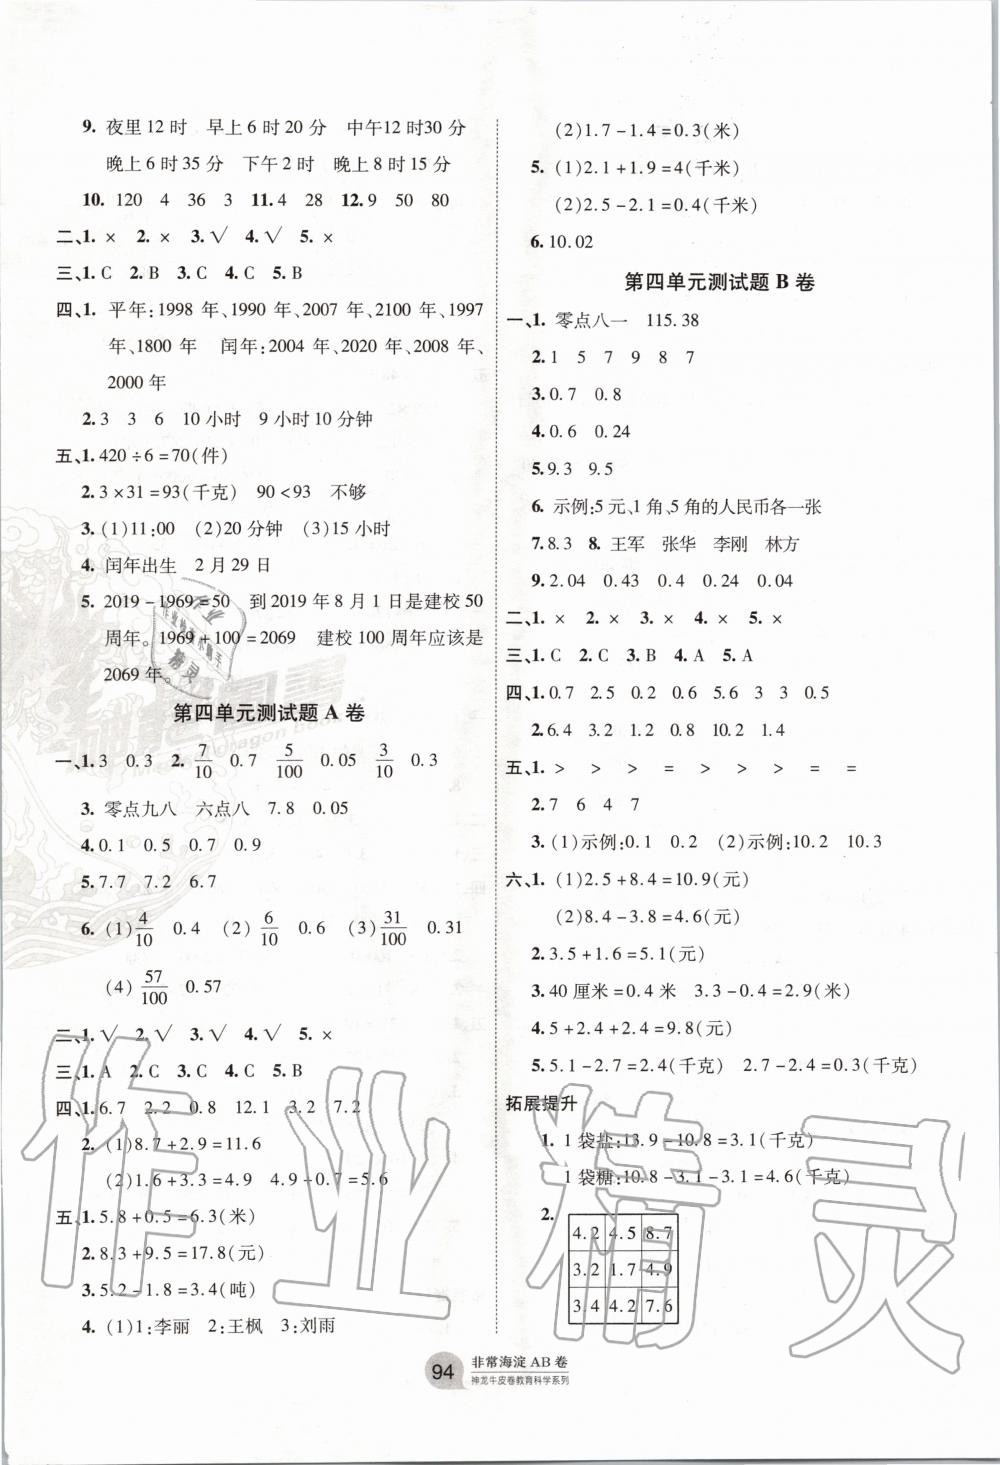 9. 夜里12时 早上6时20分 中午12时30分
晚上6时35分 下午2时 晚上8时15分
10. 120 4 36 3 11. 4 28 12. 9 50 80
二、1. × 2. × 3. √ 4. √ 5. ×
三、1. C 2. B 3. C 4. C 5. B
四、1. 平年:1998年、1990年、2007年、2100年、1997
年、1800年 闰年:2004年、2020年、2008年、
2000年
2. 3 3 6 10小时 9小时10分钟
五、1. 420÷6=70(件)
2. 3×31=93(千克) 90<93 不够
3. (1)11:00 (2)20分钟 (3)15小时
4. 闰年出生 2月29日
5. 2019-1969=50 到2019年8月1日是建校50
周年。1969+100=2069 建校100周年应该是
2069年。
第四单元测试题A卷
一、1. 3 0.3 2. 7/10 0.7 5/100 0.05 3/10 0.3
3. 零点九八 六点八 7.8 0.05
4. 0.1 0.5 0.7 0.9
5. 7.7 7.2 6.7
6. (1)4/10 0.4 (2)6/10 0.6 (3)31/100 0.31
(4)57/100 0.57
二、1. √ 2. √ 3. √ 4. √ 5. ×
三、1. A 2. C 3. C 4. C 5. B
四、1. 6.7 2.2 0.8 12.1 3.2 7.2
2. (1)8.7+2.9=11.6
(2)1.6+3.3=4.9 4.9+0.7=5.6
五、1. 5.8+0.5=6.3(米)
2. 8.3+9.5=17.8(元)
3. 5.2-1.8=3.4(吨)
4. (1)1:李丽 2:王枫 3:刘雨
(2)1.7-1.4=0.3(米)
5. (1)2.1+1.9=4(千米)
(2)2.5-2.1=0.4(千米)
6. 10.02
第四单元测试题B卷
一、1. 零点八一 115.38
2. 1 5 7 9 8 7
3. 0.7 0.8
4. 0.6 0.24
5. 9.3 9.5
6. 示例:5元、1角、5角的人民币各一张
7. 8.3 8. 王军 张华 李刚 林方
9. 2.04 0.43 0.4 0.24 0.04
二、1. × 2. × 3. × 4. × 5. ×
三、1. C 2. C 3. B 4. A 5. A
四、1. 0.7 2.5 0.2 0.6 5.6 3 3 0.5
2. 6.4 3.2 1.2 0.8 10.2 1.4
五、1. > > > = > > > = =
2. 7 6 4 7
3. (1)示例:0.1 0.2 (2)示例:10.2 10.3
六、1. (1)2.5+8.4=10.9(元)
(2)8.4-3.8=4.6(元)
2. 3.5+1.6=5.1(元)
3. 40厘米=0.4米 3.3-0.4=2.9(米)
4. 5+2.4+2.4=9.8(元)
5. 5.1-2.7=2.4(千克) 2.7-2.4=0.3(千克)
拓展提升
1. 1袋盐:13.9-10.8=3.1(千克)
1袋糖:10.8-3.1-3.1=4.6(千克)
2.
4.2 4.5 8.7
3.2 1.7 4.9
3.4 4.2 7.6
94
非常海淀AB卷
神龙牛皮卷教育科学系列
作业精灵